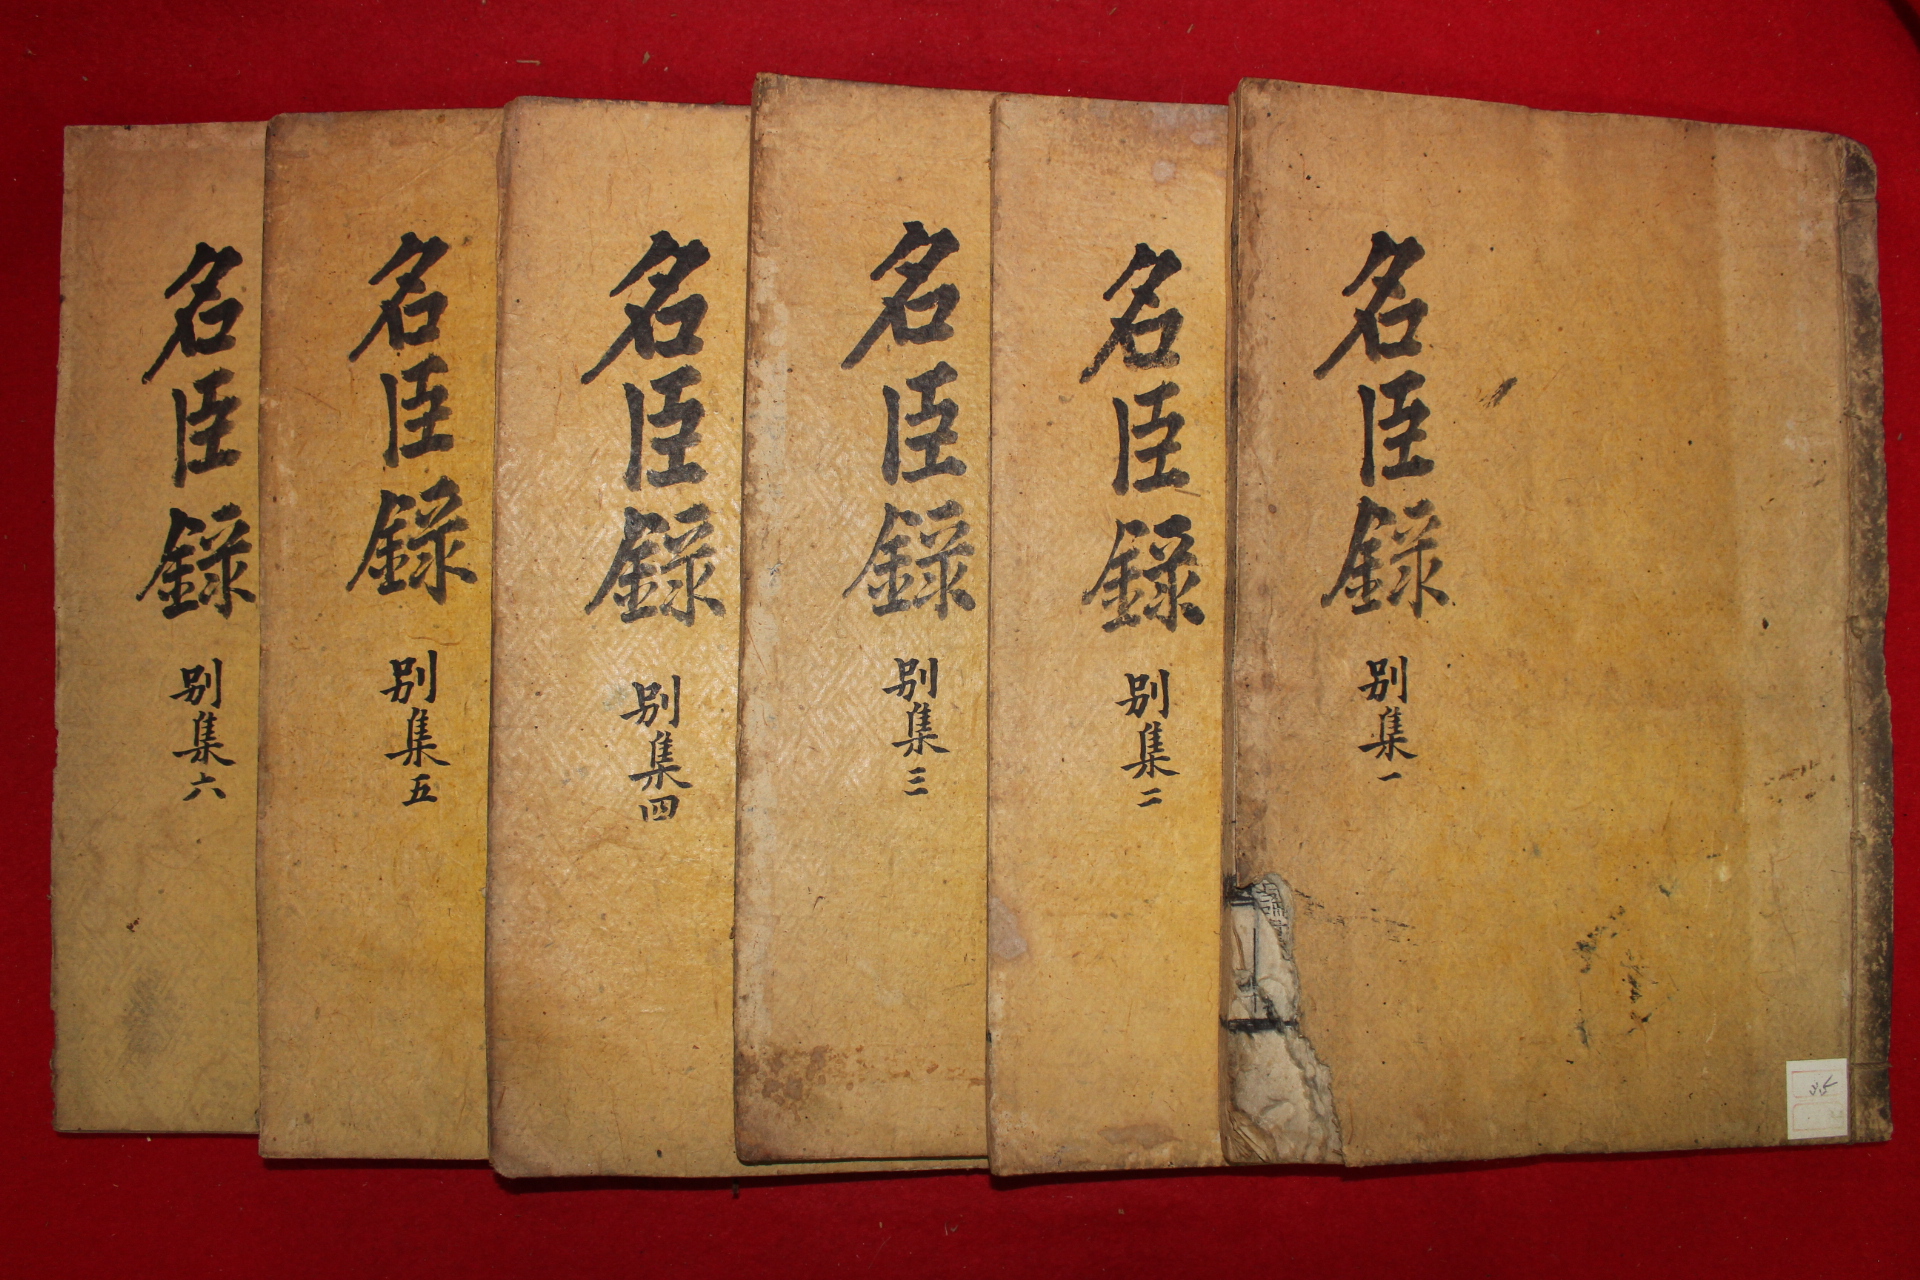 名臣錄 別集一
名臣錄 別集二
名臣錄 別集三
名臣錄 別集四
名臣錄 別集五
名臣錄 別集六